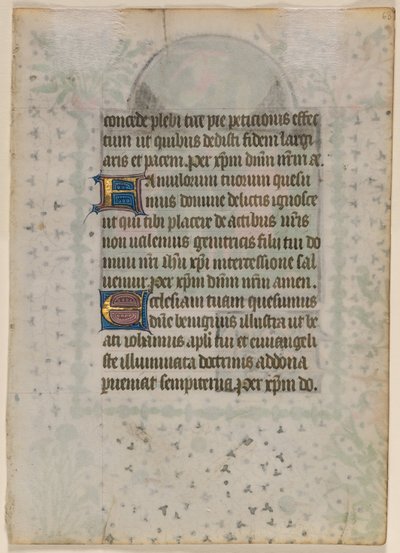 68
concede plebi tue pie peticionis effec
tum ut quibus dedisti fidem largi
aris et pacem. Per xpm dnm nrm ae.
Famulorum tuorum quesu
mus domine delictis ignosce
ut qui tibi placere de actibus nris
non valemus genitricis filii tui do
mini nri ihu xpi intercessione sal
vemur. Per xpm dnm nrm amen.
Ecclesiam tuam quesumus
dne benignus illustra ut be
ati iohannis apli tui et euuangeli
ste illuminata doctrinis ad dona
pueniat sempiterna. Per xpm do.